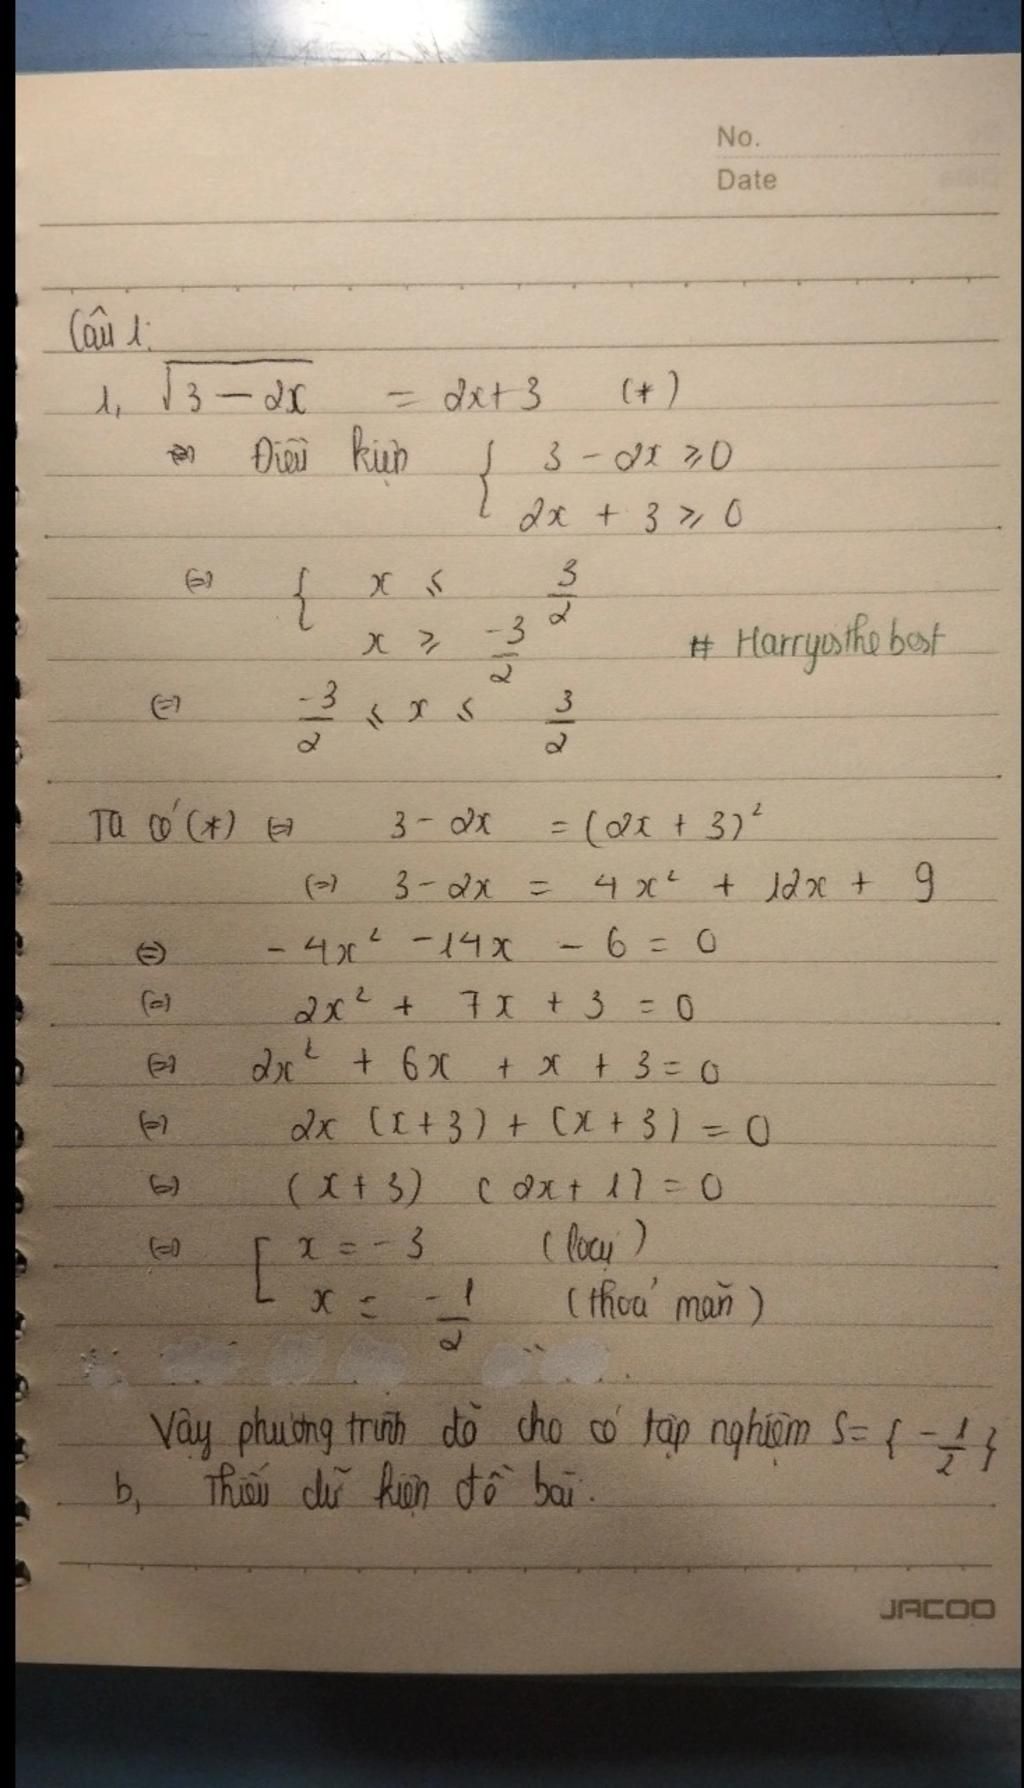 No.
Date
Câu 1:
1, √3 - 2x = 2x + 3 (*)
⇔ Điều kiện { 3 - 2x ⩾ 0
2x + 3 ⩾ 0
⇔ { x ⩽ 3/2
x ⩾ -3/2
# Harryisthebest
⇔ -3/2 ⩽ x ⩽ 3/2
Ta có (*) ⇔ 3 - 2x = (2x + 3)²
⇔ 3 - 2x = 4x² + 12x + 9
⇔ - 4x² - 14x - 6 = 0
⇔ 2x² + 7x + 3 = 0
⇔ 2x² + 6x + x + 3 = 0
⇔ 2x (x + 3) + (x + 3) = 0
⇔ (x + 3) (2x + 1) = 0
⇔ [ x = - 3 (loại)
x = -1/2 (thoả mãn)
Vậy phương trình đã cho có tập nghiệm S = { -1/2 }
b, Thiếu dữ kiện đề bài.
JACOO